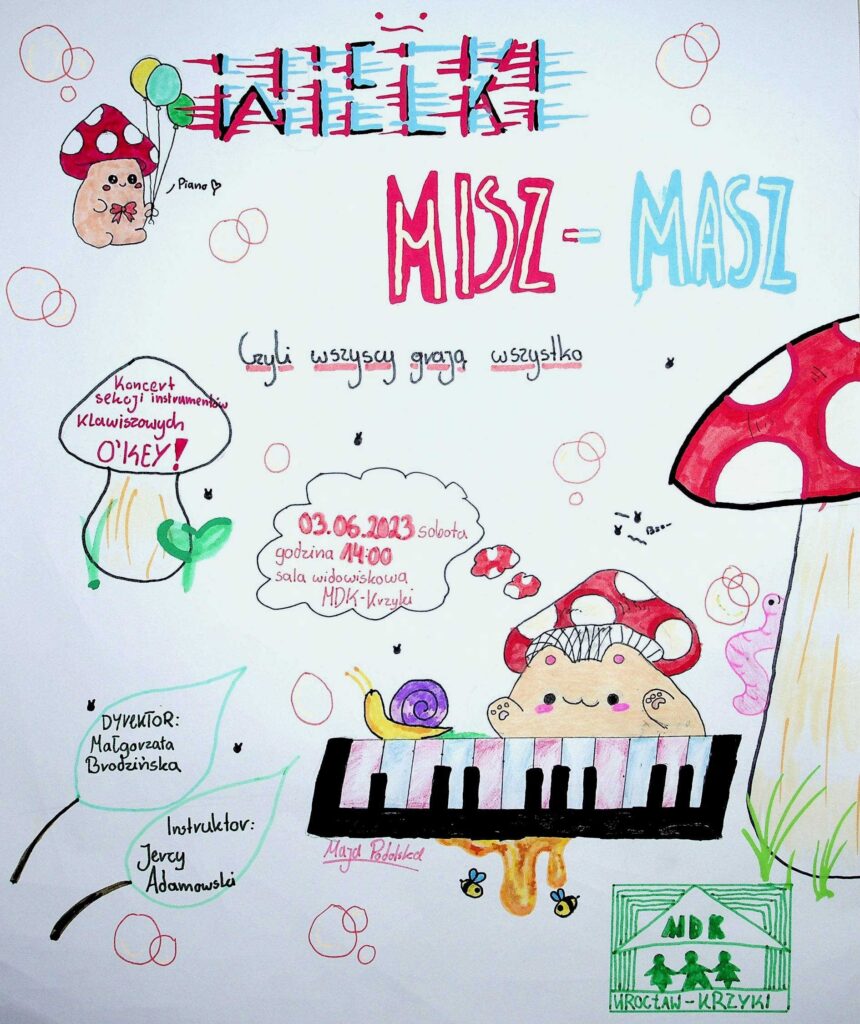 WIELKI
Piano
MISZ-MASZ
Czyli wszyscy grają wszystko
Koncert
sekcji instrumentów
klawiszowych
O'KEY!
03.06.2023 sobota
godzina 14:00
sala widowiskowa
MDK-Krzyki
Bzo-
DYREKTOR:
Małgorzata
Brodzińska
Instruktor:
Jerzy
Adamowski
Maja Podolska
MDK
WROCŁAW-KRZYKI